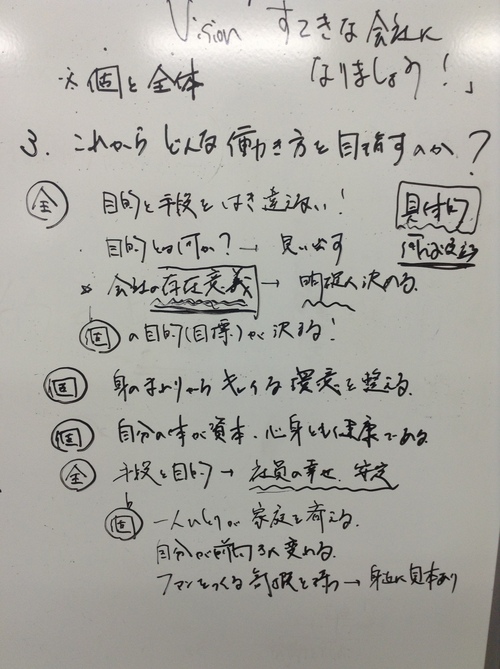 Vision 「すてきな会社に
なりましょう!」
※ 個と全体
3. これからどんな働き方を目指すのか?
全 目的と手段をはき違えない!
具体的
目的とは何か?→ 思い出す
※ 会社の存在意義 → 明確に決める。
個 の目的(目標)が決まる!
個 身のまわりからキレイな環境を整える。
個 自分の体が資本、心身ともに健康である
全 手段と目的 → 社員の幸せ、安定
個 一人ひとりが家庭を考える。
自分が前向きに変わる。
ファンをつくる気概を持つ → 身近に見本あり